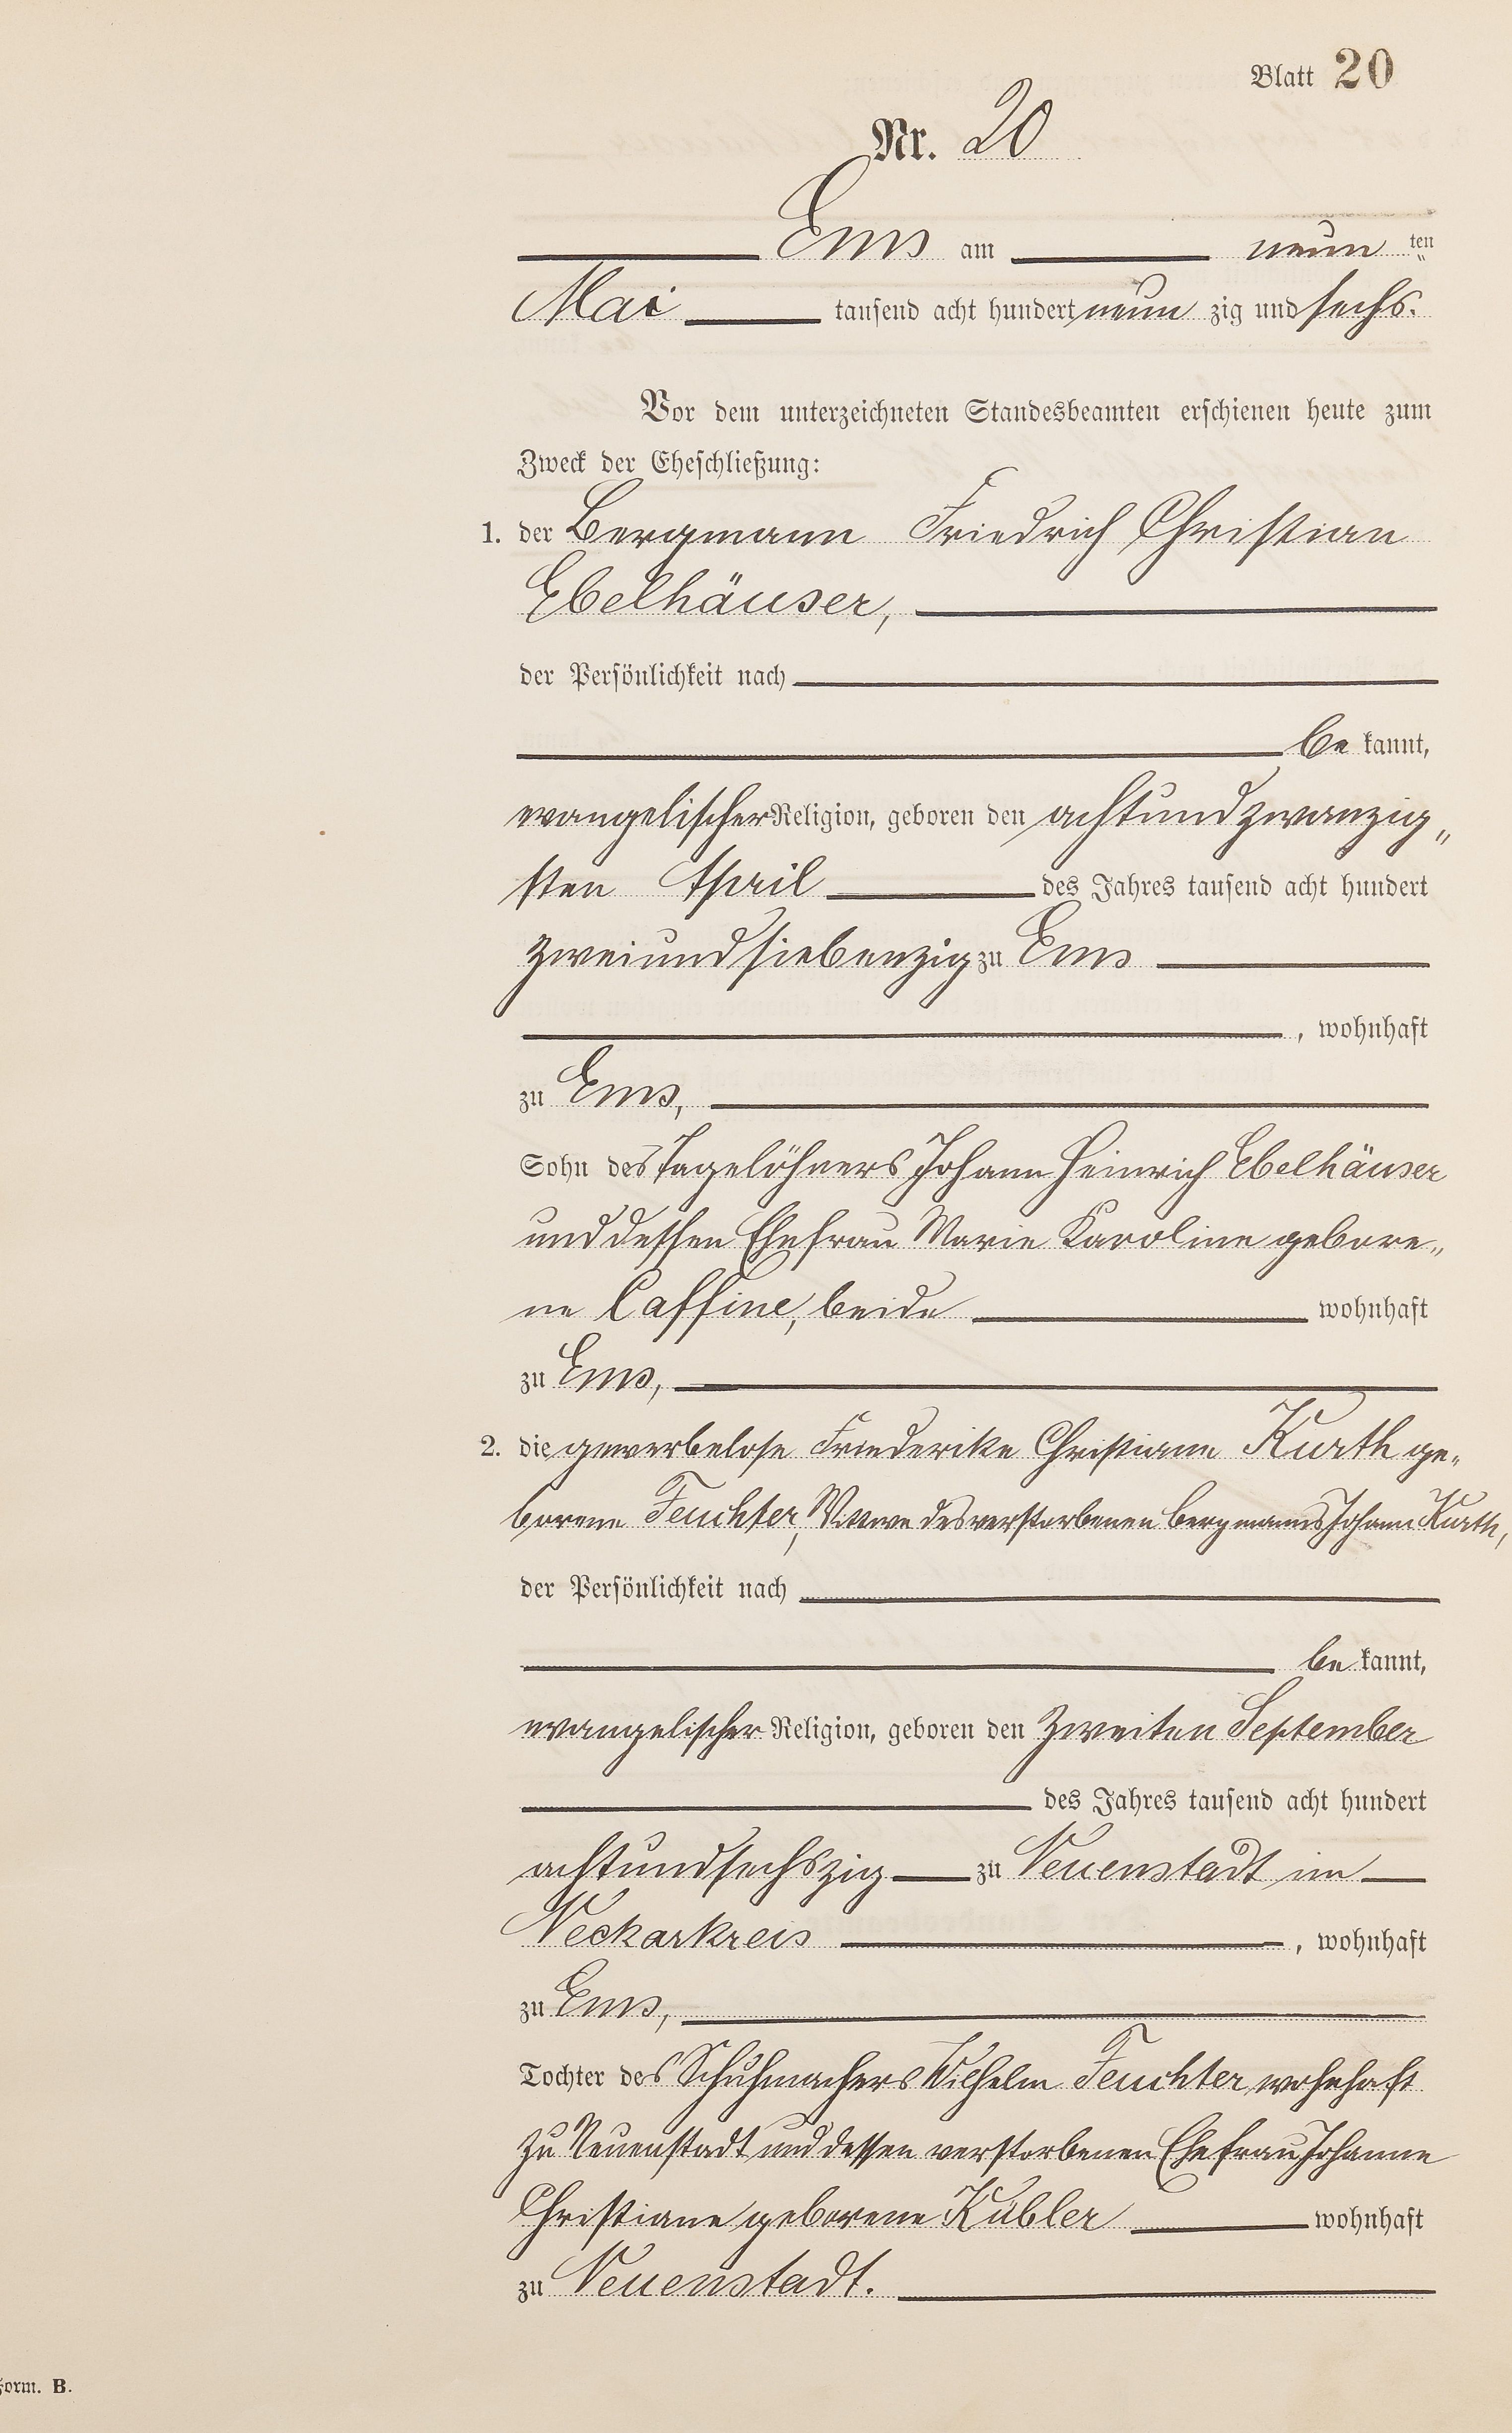 Blatt 20
Nr. 20
Ems am neun ten
Mai tausend acht hundert neun zig und sechs.
Vor dem unterzeichneten Standesbeamten erschienen heute zum
Zweck der Eheschließung:
1. der Bergmann Friedrich Christian
Ebelhäuser,
der Persönlichkeit nach
be kannt,
evangelischer Religion, geboren den achtundzwanzig„
sten April des Jahres tausend acht hundert
zweiundsiebenzig zu Ems
, wohnhaft
zu Ems,
Sohn des Tagelöhners Johann Heinrich Ebelhäuser
und dessen Ehefrau Marie Karoline gebore„
ne Caffine, beide wohnhaft
zu Ems,
2. die gewerbelose Friederike Christiane Kurth ge„
borene Feuchter, Wittwe des verstorbenen Bergmanns Johann Kurth,
der Persönlichkeit nach
be kannt,
evangelischer Religion, geboren den zweiten September
des Jahres tausend acht hundert
achtundsechszig zu Neuenstadt im
Neckarkreis , wohnhaft
zu Ems,
Tochter des Schuhmachers Wilhelm Feuchter wohnhaft
zu Neuenstadt und dessen verstorbenen Ehefrau Johanne
Christiane geborene Kübler wohnhaft
zu Neuenstadt.
Form. B.